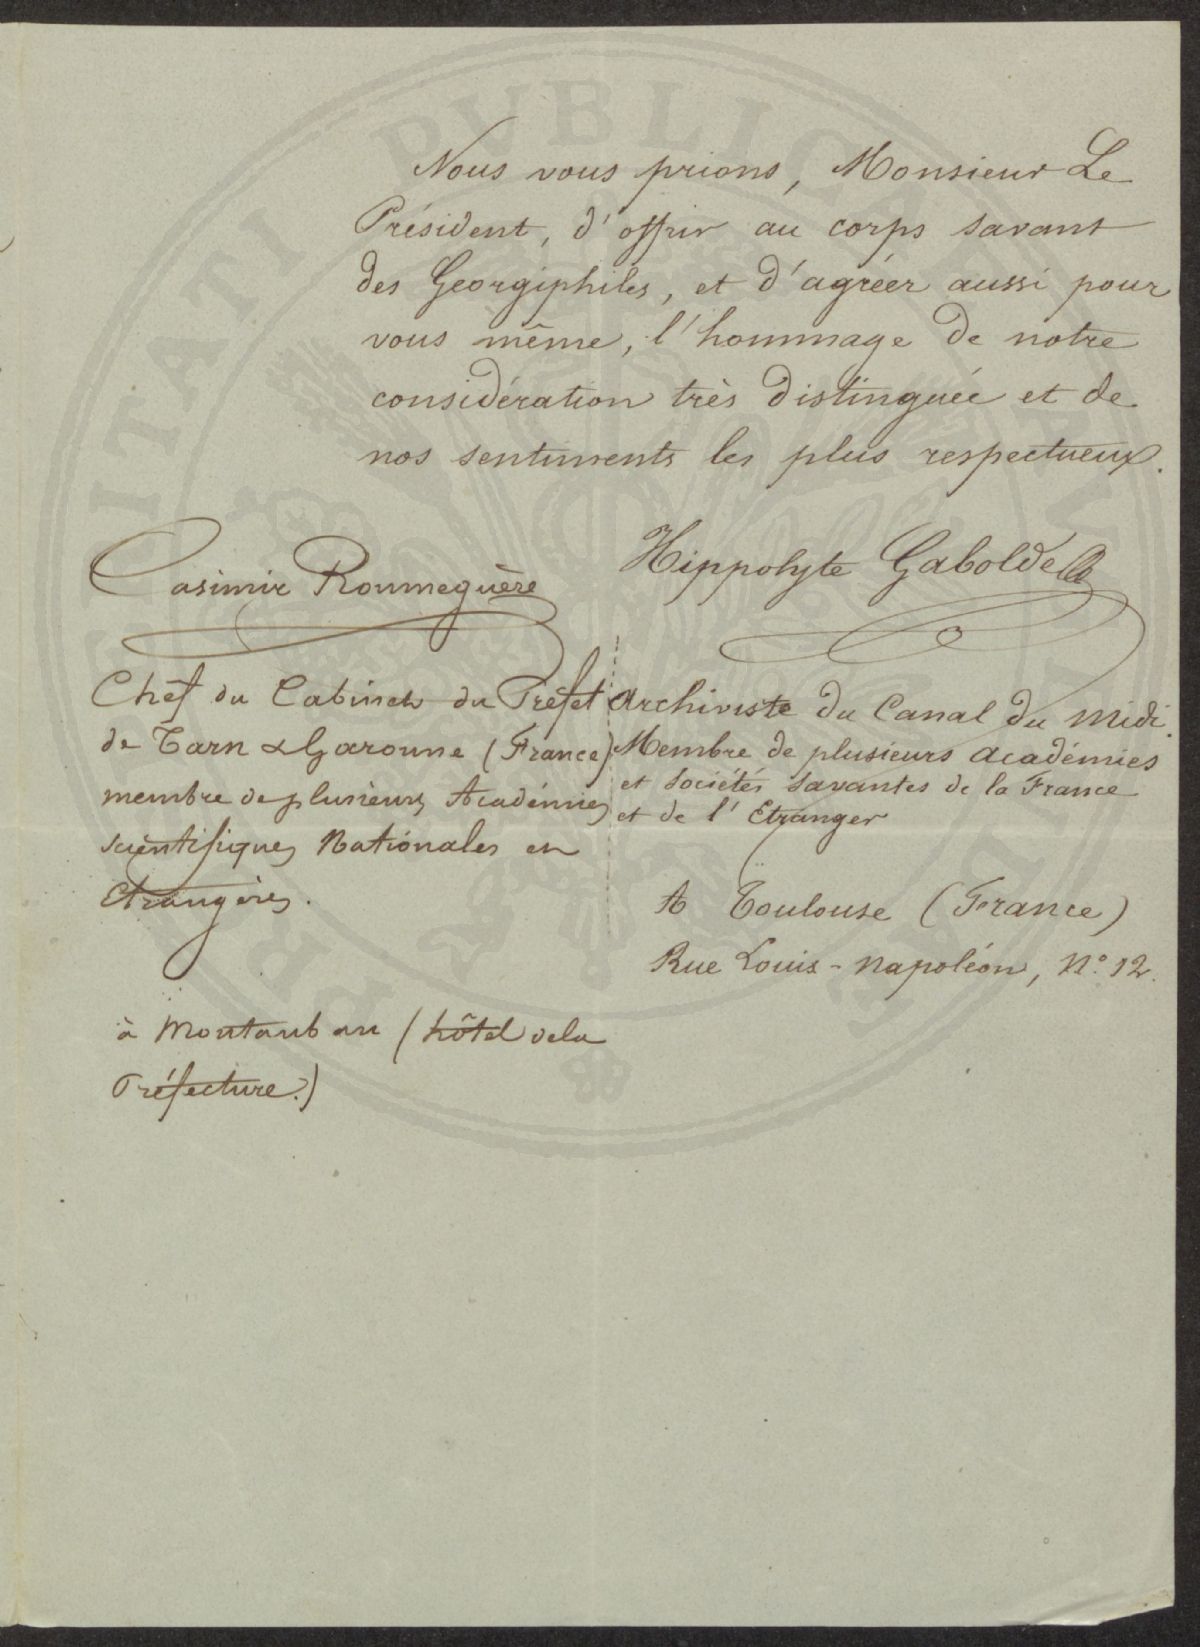 Nous vous prions, Monsieur Le
Président, d'offrir au corps savant
des Georgiphiles, et d'agréer aussi pour
vous même, l'hommage de notre
considération très distinguée et de
nos sentiments les plus respectueux.
Casimir Roumeguère
Chef du Cabinet du Préfet
de Tarn & Garonne (France)
membre de plusieurs Académies
scientifiques Nationales et
Etrangères.
à Montauban (hôtel de la
Préfecture.)
Hippolyte Gabolde
Archiviste du Canal du Midi.
Membre de plusieurs académies
et sociétés savantes de la France
et de l'Etranger
A Toulouse (France)
Rue Louis-Napoléon, N° 12.
PVBLIC